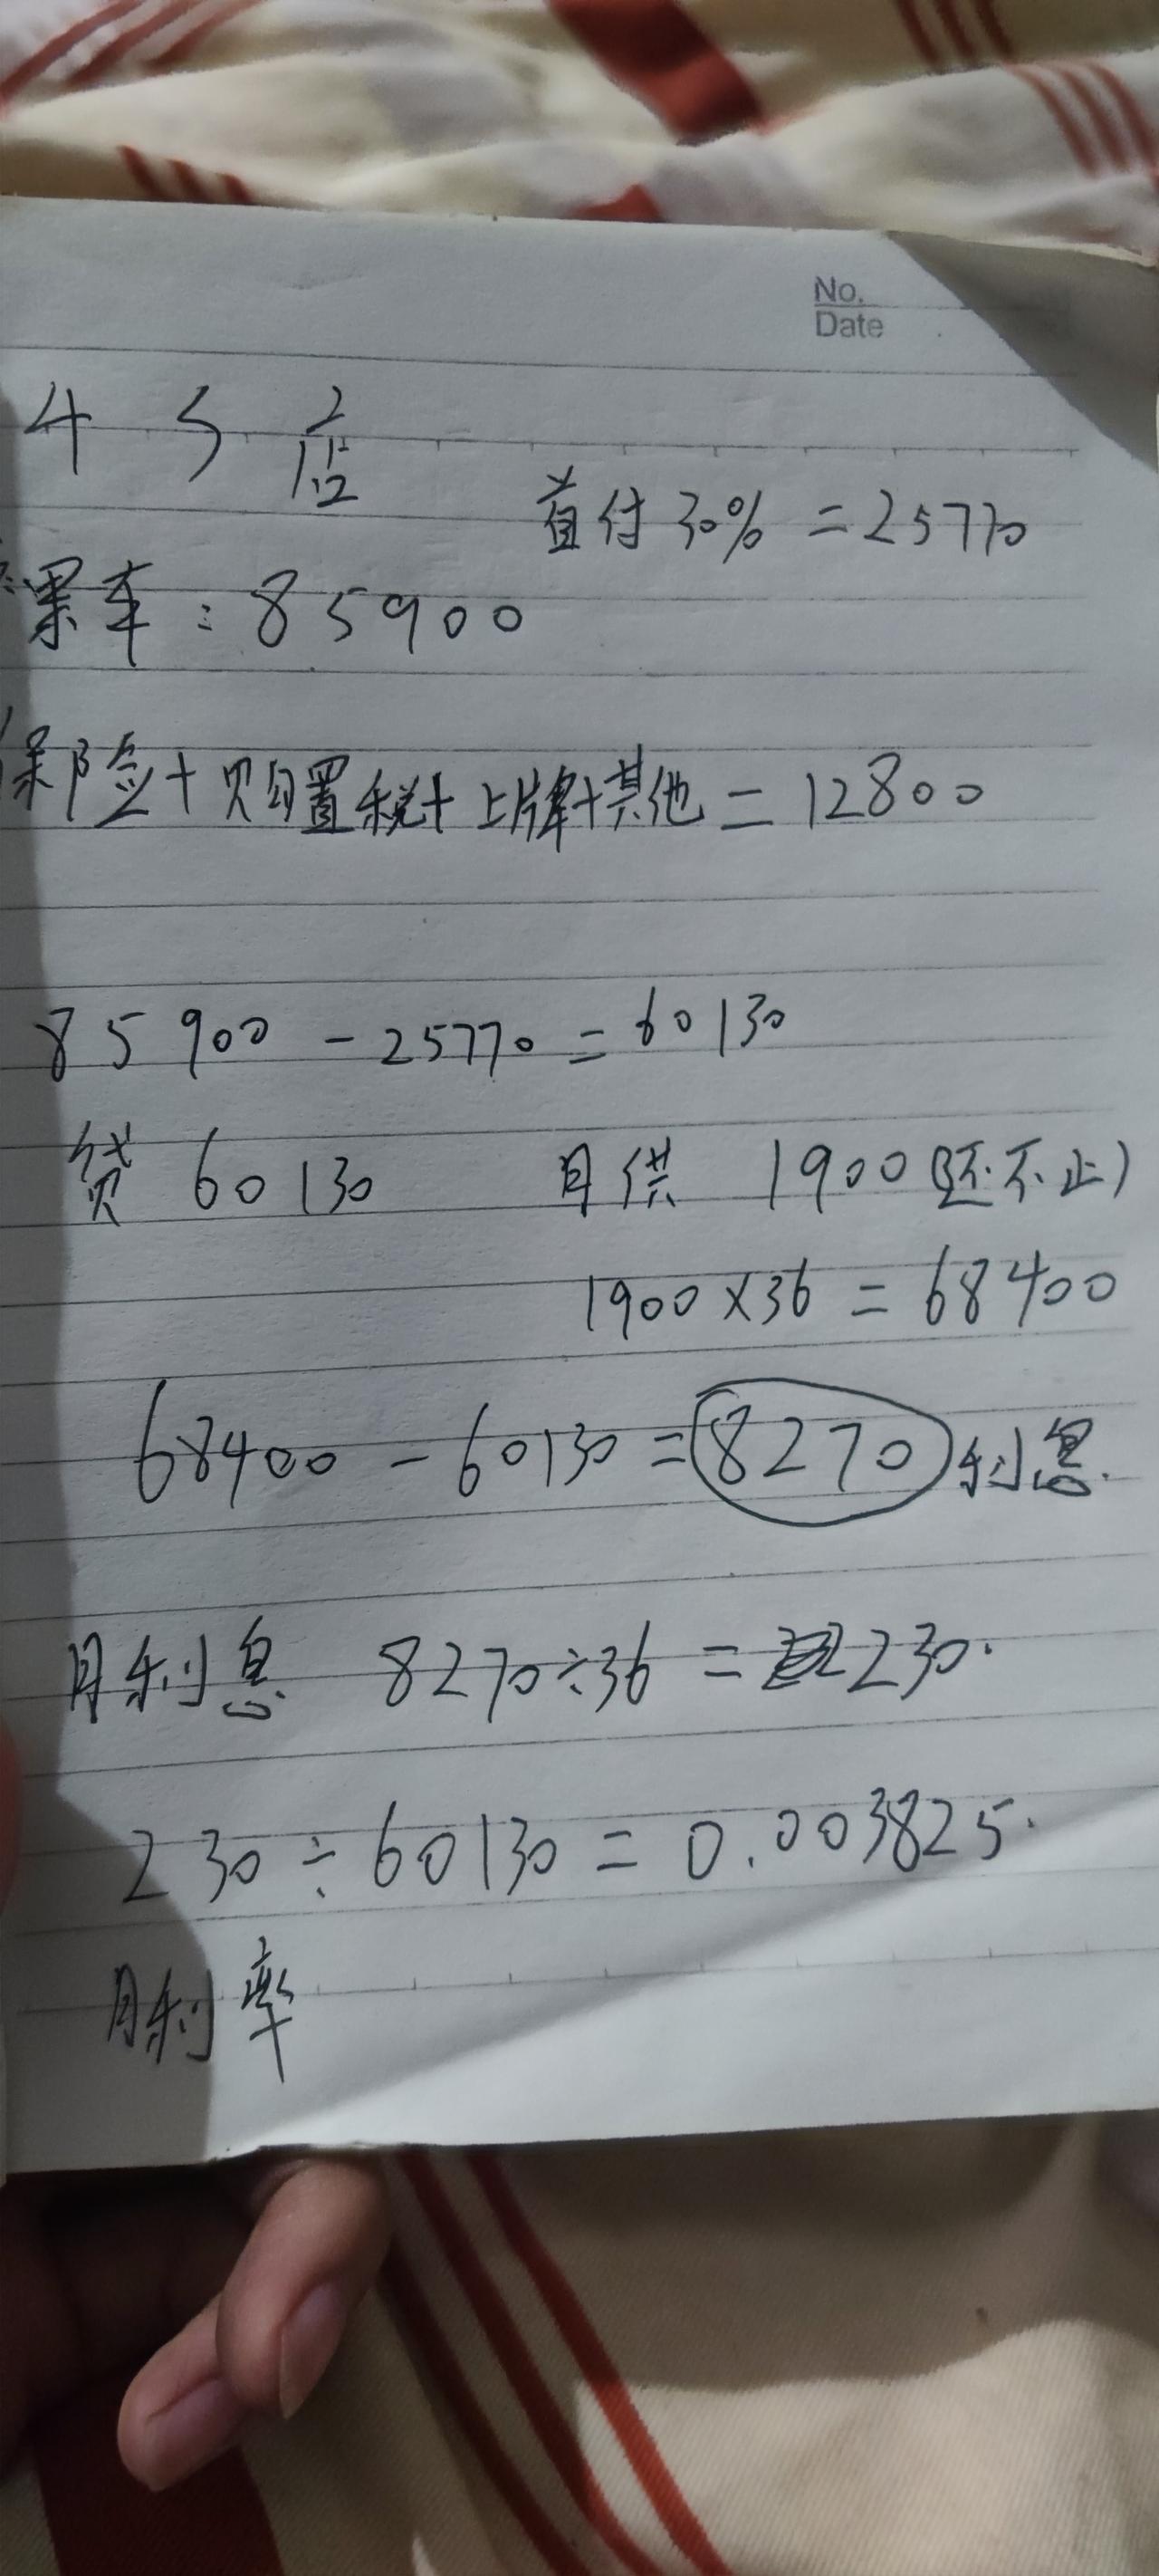 No.
Date
4 S 店
首付30% = 25770
裸车：85900
保险+购置税+上牌+其他 = 12800
85900 - 25770 = 60130
贷 60130 月供 1900(还不止)
1900×36 = 68400
68400 - 60130 = 8270 利息.
月利息 8270÷36 = 230.
230 ÷ 60130 = 0.003825.
月利率